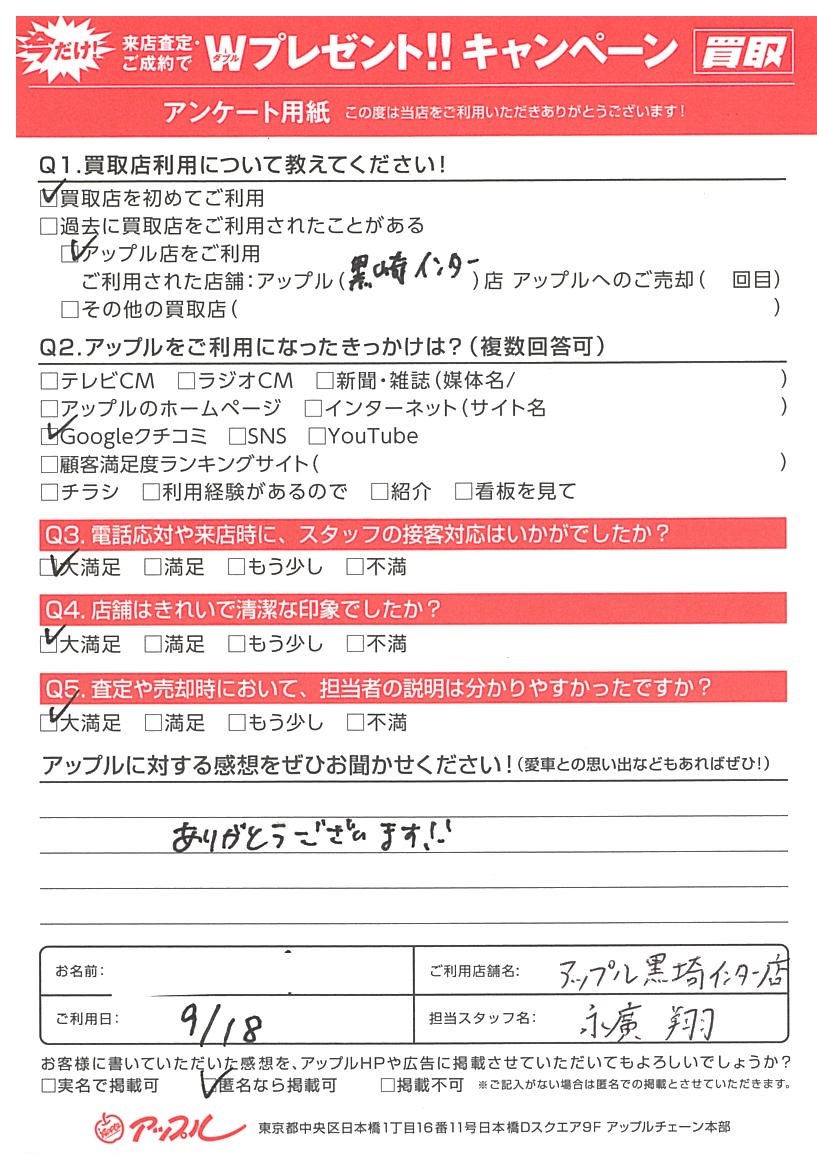 今だけ!
来店査定・
ご成約で
Wプレゼント!! キャンペーン
ダブル
買取
アンケート用紙 この度は当店をご利用いただきありがとうございます!
Q1.買取店利用について教えてください!
☑買取店を初めてご利用
□過去に買取店をご利用されたことがある
☑アップル店をご利用
ご利用された店舗:アップル(黒崎インター)店 アップルへのご売却( 回目)
□その他の買取店( )
Q2.アップルをご利用になったきっかけは?(複数回答可)
□テレビCM □ラジオCM □新聞・雑誌(媒体名/ )
□アップルのホームページ □インターネット(サイト名 )
☑Googleクチコミ □SNS □YouTube
□顧客満足度ランキングサイト( )
□チラシ □利用経験があるので □紹介 □看板を見て
Q3. 電話応対や来店時に、スタッフの接客対応はいかがでしたか?
☑大満足 □満足 □もう少し □不満
Q4. 店舗はきれいで清潔な印象でしたか?
☑大満足 □満足 □もう少し □不満
Q5. 査定や売却時において、担当者の説明は分かりやすかったですか?
☑大満足 □満足 □もう少し □不満
アップルに対する感想をぜひお聞かせください!(愛車との思い出などもあればぜひ!)
ありがとうございます!!
お名前:
ご利用店舗名: アップル黒埼インター店
ご利用日: 9/18
担当スタッフ名: 永廣 翔
お客様に書いていただいた感想を、アップルHPや広告に掲載させていただいてもよろしいでしょうか?
□実名で掲載可 ☑匿名なら掲載可 □掲載不可 ※ご記入がない場合は匿名での掲載とさせていただきます。
アップル 東京都中央区日本橋1丁目16番11号日本橋Dスクエア9F アップルチェーン本部